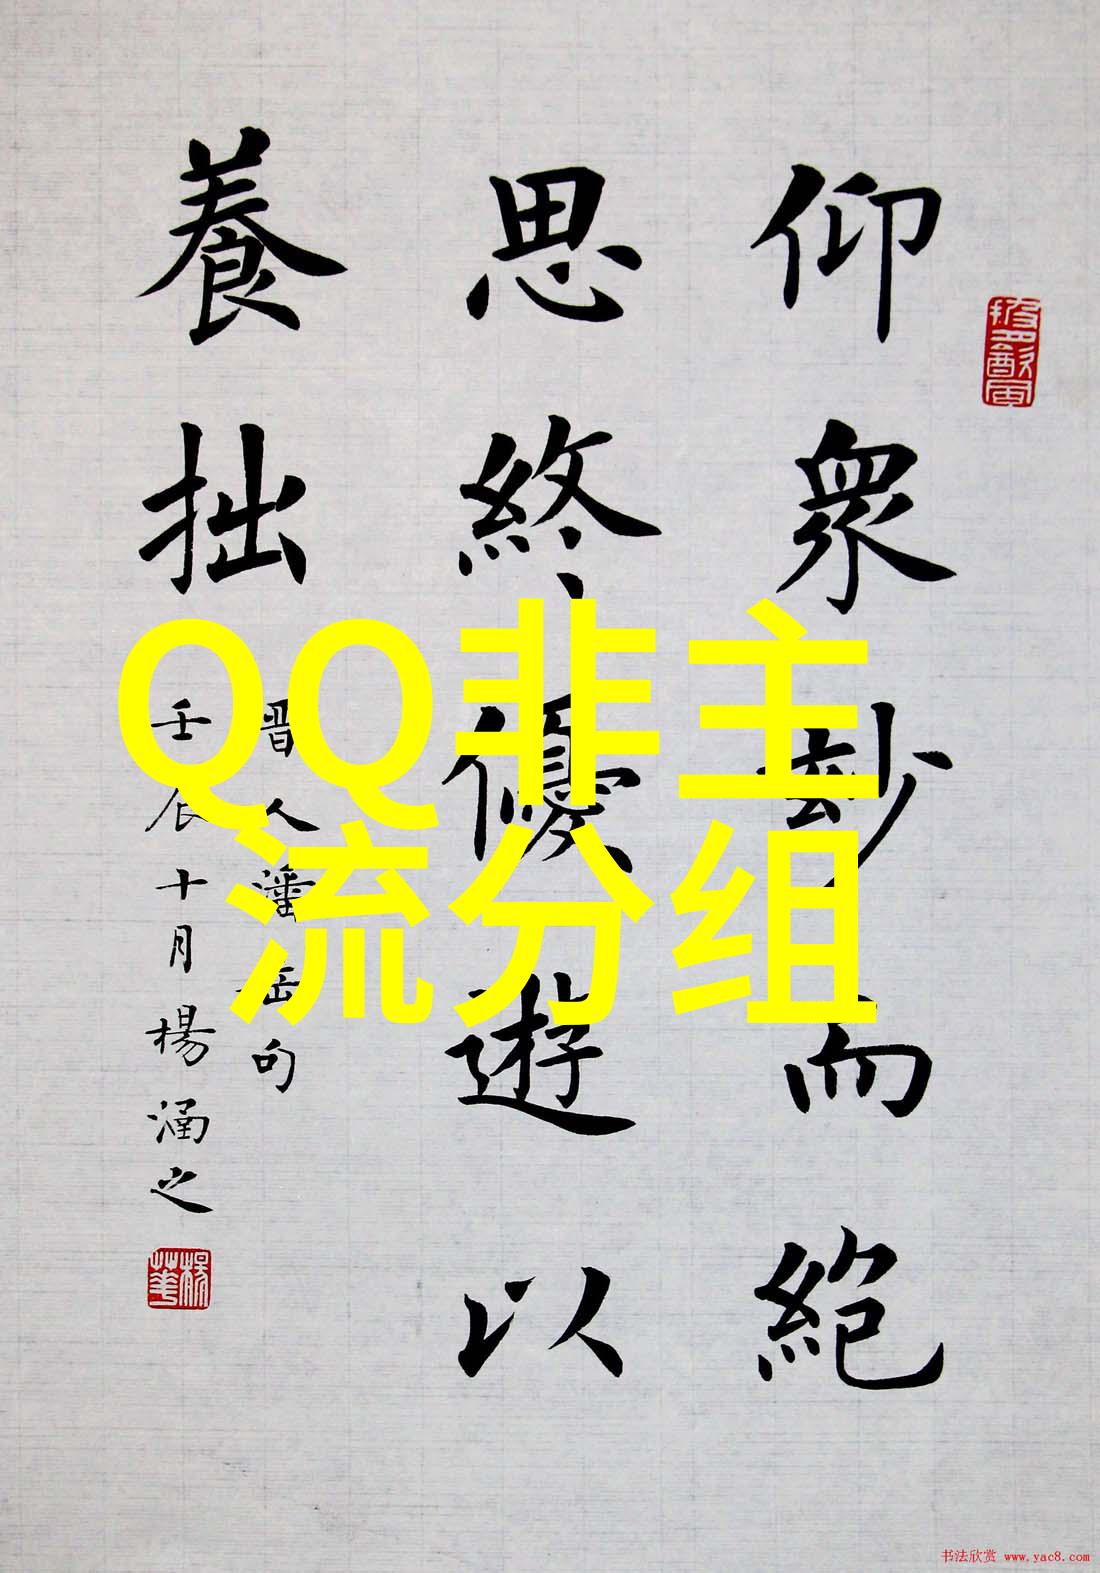 仰衆妙而絶
思終優遊以
養拙
晋人潘岳句
壬辰十月楊涵之
QQ非主
流分组
书法欣赏 www.yac8.com